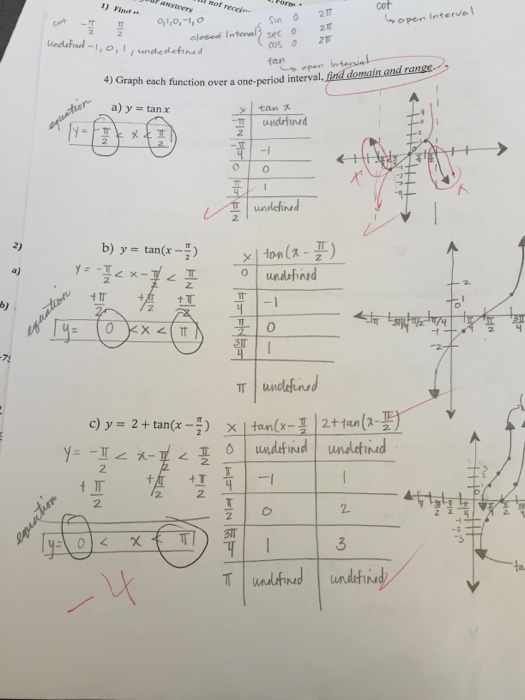 1) Find
answers
not receive
0,1,0,-1,0
sin 0 2π
cot
↳ open Interval
cot -π/2 π/2
closed Interval
sec 0 2π
cos 0 2π
undefined -1, 0, 1, undedefined
tan
↳ open interval
4) Graph each function over a one-period interval, find domain and range.
equation
a) y = tan x
y = -π/2 < x < π/2
x | tan x
-π/2 | undefined
-π/4 | -1
0 | 0
π/4 | 1
π/2 | undefined
2)
a)
b)
b) y = tan(x − π/2)
y = -π/2 < x - π/2 < π/2
+π/2 +π/2 +π/2
equation
y = 0 < x < π
x | tan(x - π/2)
0 | undefined
π/4 | -1
π/2 | 0
3π/4 | 1
π | undefined
c) y = 2 + tan(x − π/2)
y = -π/2 < x - π/2 < π/2
+π/2 +π/2 +π/2
equation
y = 0 < x < π
x | tan(x - π/2) | 2 + tan(x - π/2)
0 | undefined | undefined
π/4 | -1 | 1
π/2 | 0 | 2
3π/4 | 1 | 3
π | undefined | undefined
-4